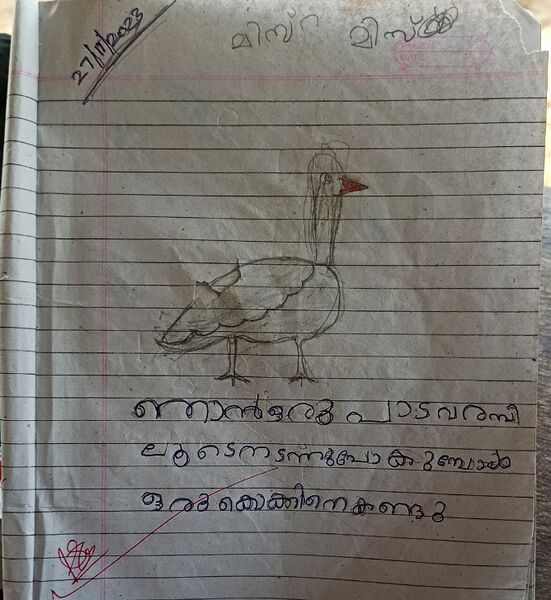 27/11/2023
മിസ്റ മിസ്
ഞാൻ ഒരു പാടവരമ്പി
ലൂടെ നടന്നുപോകുമ്പോൾ
ഒരു കൊക്കിനെ കണ്ടു